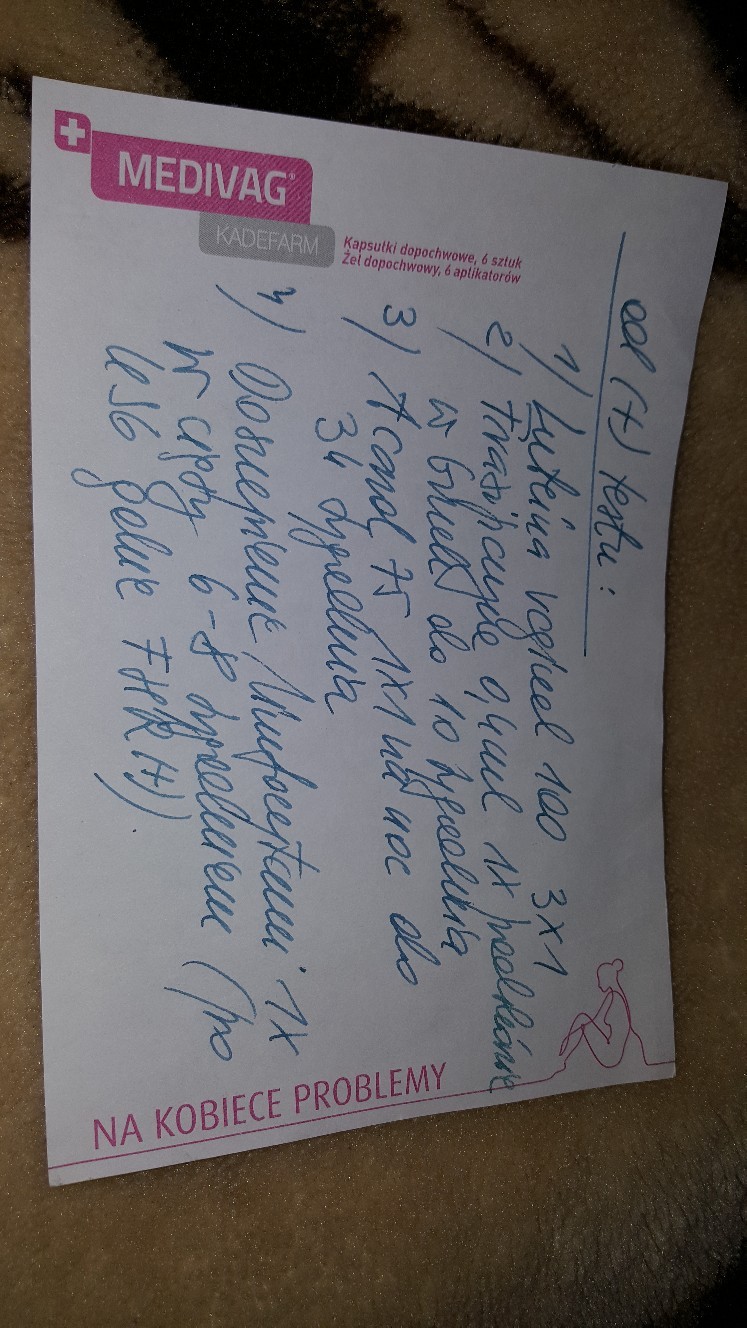 MEDIVAG®
KADEFARM
Kapsułki dopochwowe, 6 sztuk
Żel dopochwowy, 6 aplikatorów
od (+) testu:
1) Luteina vaginal 100 3x1
2) 1x podskórnie
w brzuch do 10 tygodnia
3) Acard 75 1x1 na noc do
34 tygodnia
4) Doszczepienie limfocytami 1x
w ciąży 6-8 tygodniem (po
USG gdzie FHR(+)).
NA KOBIECE PROBLEMY